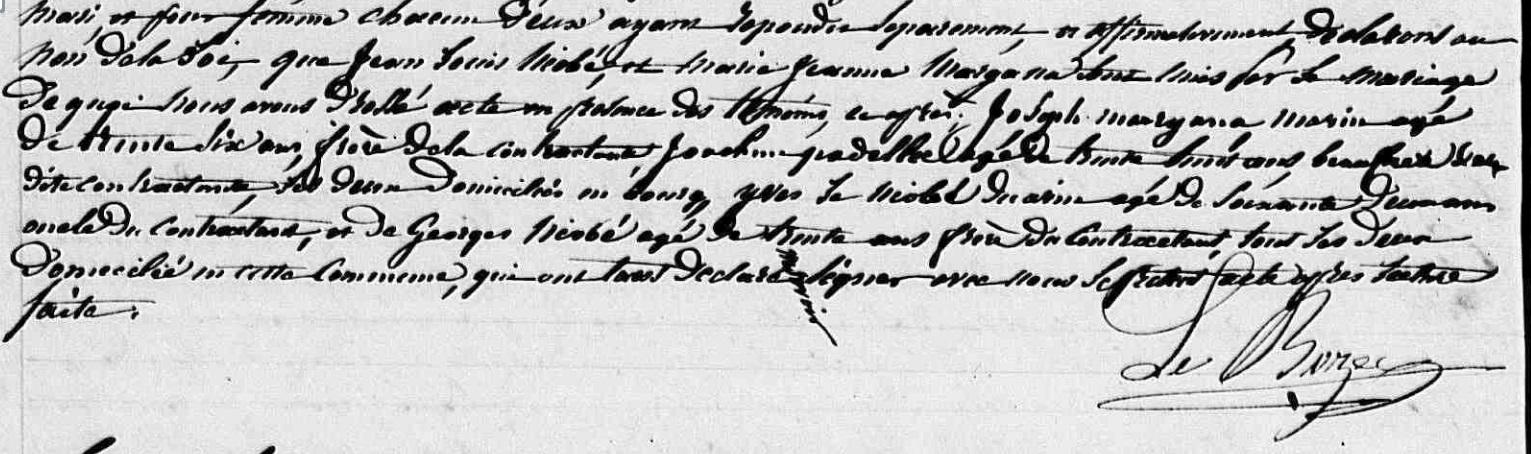 mari, et pour femme chacun d'eux ayant repondu separement, et affirmativement declarons au
non de la Loi, que Jean Louis Nicbé, et Marie Jeanne Margana sont unis par le mariage
de quoi nous avons dressé acte en presence des témoins, ci après; Joseph margana marin agé
de trente six ans, frère de la contractante Joachim agé de trente huit ans, beau frere
dite contractante, les deux domiciliés en bourg, yves Le Nicbé Marin agé de soixante deux ans
oncle du contractant, et de Georges Nicbé agé de trente ans frère du contractant, tous les deux
domicilié en cette commune, qui ont tous declaré signer avec nous le present acte après lecture
faite.
Le